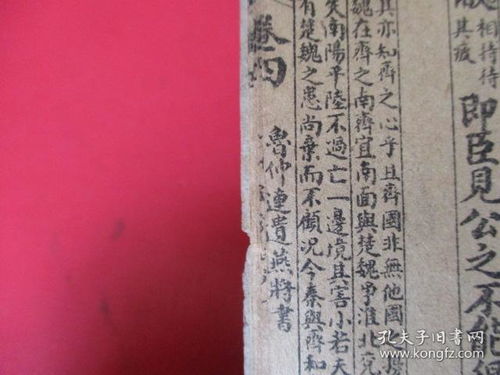 相持待
其疲
即臣見公之不能
其亦知齊之心乎且齊國非無他國之擾
魏在齊之南齊宜南面與楚魏爭淮北兗
失南陽平陸不過亡一邊境其害小若夫
有楚魏之患尚棄而不顧況今秦與齊和
卷四
魯仲連遺燕將書
孔夫子旧书网
kongfz.com